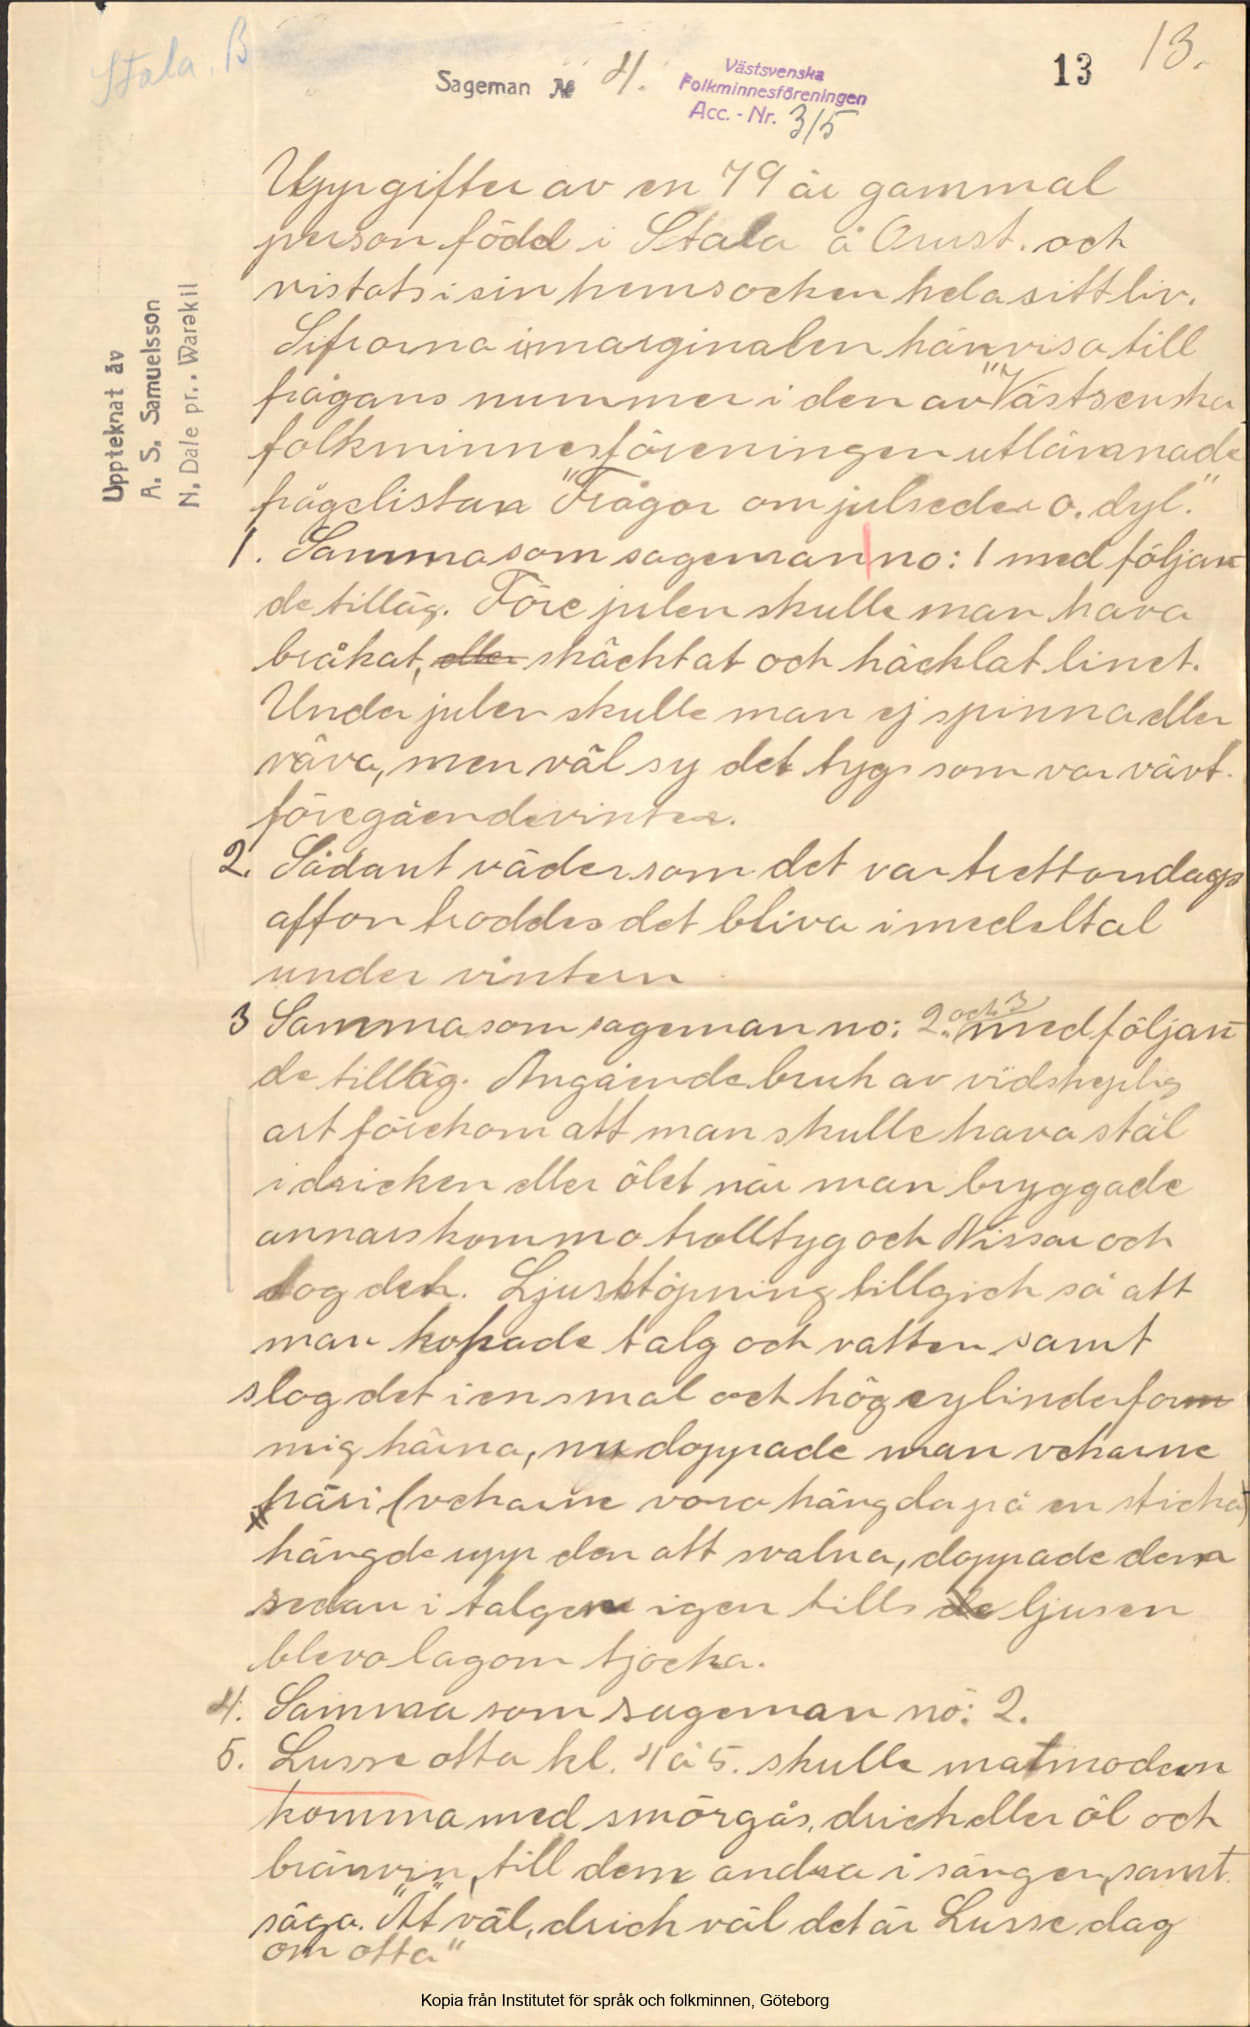 Stala, B
Sageman № 4.
Västsvenska
Folkminnesföreningen
Acc. - Nr. 315
13
13.
Uppteknat av
A. S. Samuelsson
N. Dale pr., Warekil
Uppgifter av en 79 år gammal
person född i Stala å Orust. och
vistats i sin hemsocken hela sitt liv.
Sifrorna i marginalen hänvisa till
frågans nummer i den av "Västsenska
folkminnesföreningen utlämnade
frågelistan "Frågor om julseder o. dyl."
1. Samma som sageman no: 1 med följan
de tilläg. Före julen skulle man hava
bråkat, eller skäcktat och häcklat linet.
Under julen skulle man ej spinna eller
väva, men väl sy det tyg som var vävt
föregående vinter.
2. Sådant väder som det var trettondags
affon troddes det bliva i medeltal
under vintern
3 Samma som sageman no: 2. och 3 med följan
de tilläg. Angående bruk av vidskeplig
art förekom att man skulle hava stål
i dricken eller ölet när man bryggade
annars kommo trolltyg och Nissar och
tog det. Ljusstöpning tillgick så att
man kokade talg och vatten samt
slog det i en smal och hög cylinderform
mig kärna, nu doppade man vekarne
häri (vekarne voro hängda på en sticka)
hängde upp den att svalna, doppade dem
sedan i talgen igen tills de ljusen
blevo lagom tjocka.
4. Samma som sageman no: 2.
5. Lusse otta kl. 4 à 5. skulle matmodern
komma med smörgås, drick eller öl och
bränvin, till dem andra i sängen, samt
säga. "Ät väl, drick väl det är Lusse dag
om otta"
Kopia från Institutet för språk och folkminnen, Göteborg